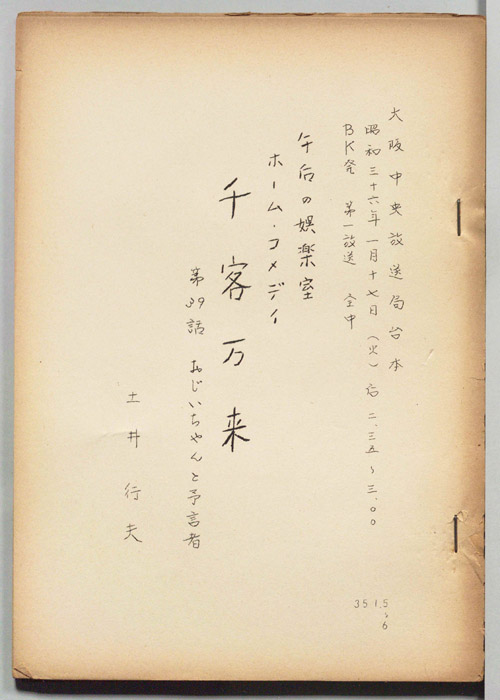 大阪中央放送局台本
昭和三十六年一月十七日(火)后二.三五~三.○○
BK発 第一放送 全中
午后の娯楽室
ホーム・コメディ
千客万来
第39話 おじいちゃんと予言者
土井行夫
35 1.5
〜6